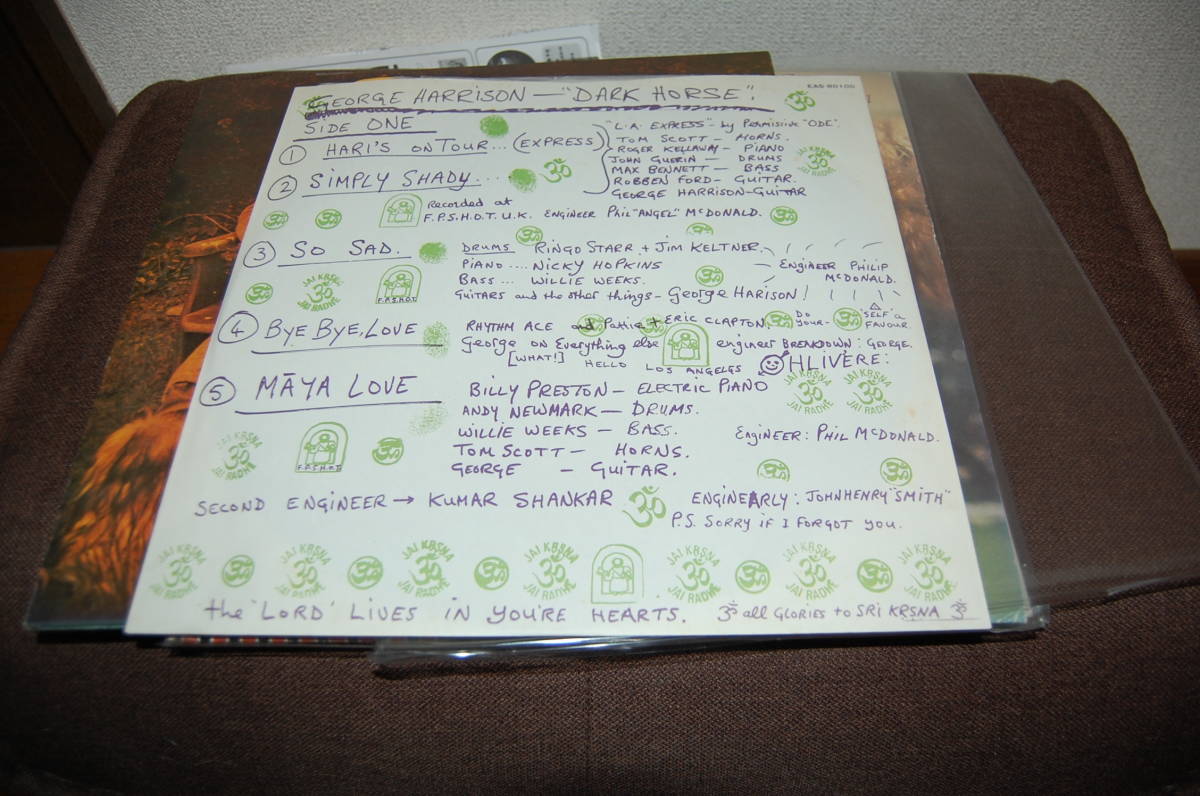 GEORGE HARRISON — "DARK HORSE".
EAS-80100
SIDE ONE
① HARI'S ON TOUR... (EXPRESS)
② SIMPLY SHADY...
"L.A. EXPRESS" - by Permissive "ODE".
TOM SCOTT — HORNS.
ROGER KELLAWAY - PIANO
JOHN GUERIN — DRUMS
MAX BENNETT — BASS
ROBBEN FORD - GUITAR.
GEORGE HARRISON - GUITAR
Recorded at
F.P.S.H.O.T. U.K. ENGINEER PHIL "ANGEL" McDONALD.
③ SO SAD.
DRUMS RINGO STARR + JIM KELTNER.
PIANO .... NICKY HOPKINS
BASS ... WILLIE WEEKS.
GUITARS and the other things - George HARISON!
ENGINEER PHILIP
McDONALD.
F.P.S.H.O.T.
④ BYE BYE, LOVE
RHYTHM ACE and Pattie + ERIC CLAPTON.
DO
YOUR-
SELF a
FAVOUR
George on Everything else
engineer BREAKDOWN : GEORGE.
[WHAT!] HELLO LOS ANGELES
OHLIVERE:
⑤ MĀYA LOVE
BILLY PRESTON — ELECTRIC PIANO
ANDY NEWMARK — DRUMS.
WILLIE WEEKS — BASS.
TOM SCOTT — HORNS.
GEORGE — GUITAR.
Engineer: PHIL McDONALD.
F.P.S.H.O.T.
SECOND ENGINEER → KUMAR SHANKAR ॐ
ENGINEARLY : JOHNHENRY "SMITH"
P.S. SORRY IF I FORGOT YOU.
JAI KRSNA ॐ JAI RADHE
JAI KRSNA ॐ JAI RADHE
JAI KRSNA ॐ JAI RADHE
JAI KRSNA ॐ JAI RADHE
JAI KRSNA ॐ JAI RADHE
JAI KRSNA ॐ JAI RADHE
JAI KRSNA ॐ JAI RADHE
the 'LORD' LIVES IN YOU'RE HEARTS. ॐ all GLORIES to SRI KRSNA ॐ